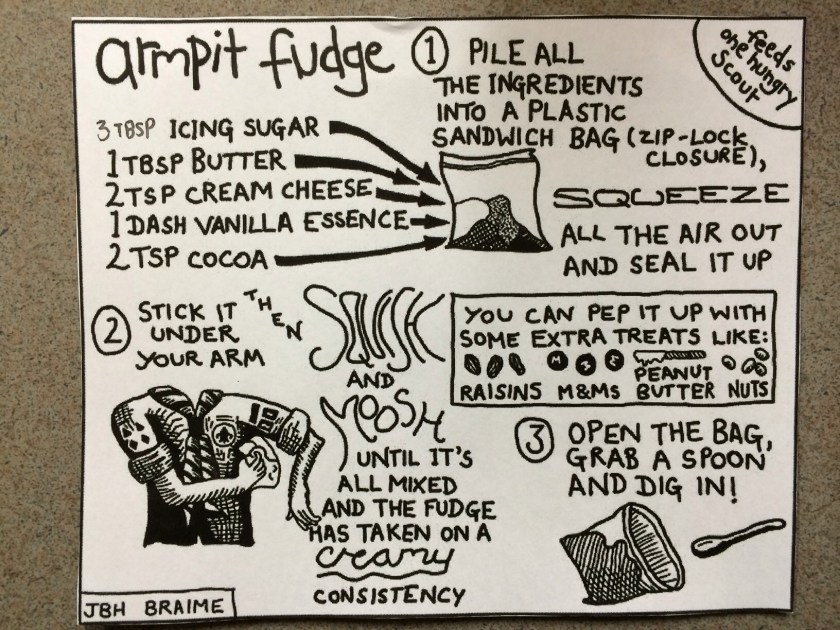 armpit fudge
feeds
one hungry
Scout
3 TBSP ICING SUGAR
1 TBSP BUTTER
2 TSP CREAM CHEESE
1 DASH VANILLA ESSENCE
2 TSP COCOA
1 PILE ALL
THE INGREDIENTS
INTO A PLASTIC
SANDWICH BAG (ZIP-LOCK
CLOSURE),
SQUEEZE
ALL THE AIR OUT
AND SEAL IT UP
2 STICK IT
UNDER
YOUR ARM
THEN
SQUISH
AND
MOOSH
UNTIL IT'S
ALL MIXED
AND THE FUDGE
HAS TAKEN ON A
creamy
CONSISTENCY
YOU CAN PEP IT UP WITH
SOME EXTRA TREATS LIKE:
RAISINS M&MS PEANUT BUTTER NUTS
3 OPEN THE BAG,
GRAB A SPOON
AND DIG IN!
JBH BRAIME